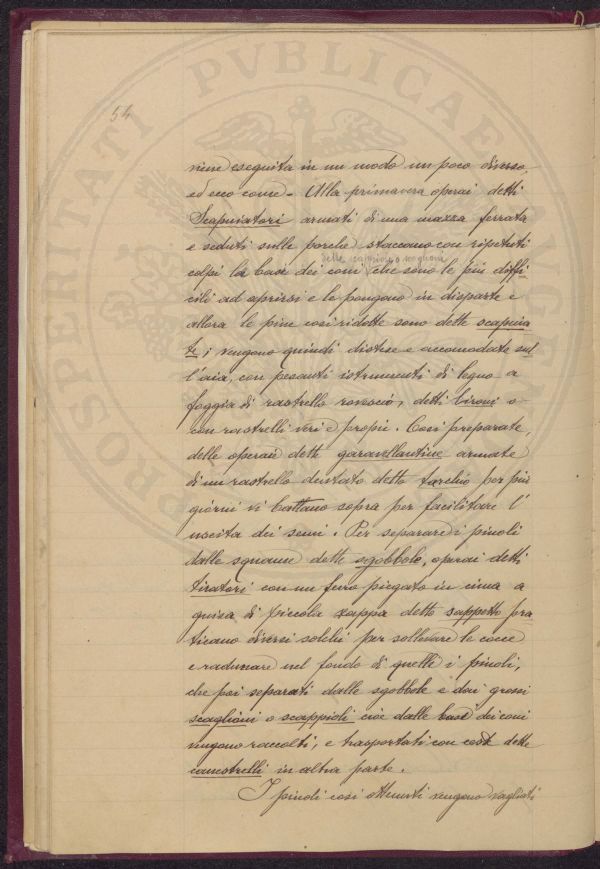 54
viene eseguita in un modo un poco diverso,
ed ecco come - Alla primavera operai detti
Scapuiatori armati di una mazza ferrata
e seduti sulle porche staccano con ripetuti
dette scappioni o scaglioni
colpi la base dei coni che sono le più diffi-
cili ad aprirsi e le pongono in disparte e
allora le pine così ridotte sono dette scapuia
te; vengono quindi distese e accomodate sul
l'aia, con pesanti istrumenti di legno a
foggia di rastrello rovescio, detti bironi o
con rastrelli veri e propri. Così preparate,
delle operaie dette garavellantine armate
di un rastrello dentato detto farchio per più
giorni vi battono sopra per facilitare l'
uscita dei semi. Per separare i pinoli
dalle squame dette sgobbole, operai detti
tiratori con un ferro piegato in cima a
guisa di piccola zappa detto sappetto pra
ticano diversi solchi per sollevare le cocce
e radunare nel fondo di quelle i pinoli,
che poi separati dalle sgobbole e dai grossi
scaglioni o scappioli cioè dalle base dei coni
vengono raccolti, e trasportati con ceste dette
canestrelli in altra parte.
I pinoli così ottenuti vengono vagliati
PROSPERITATI PVBLICAE AVGENDAE